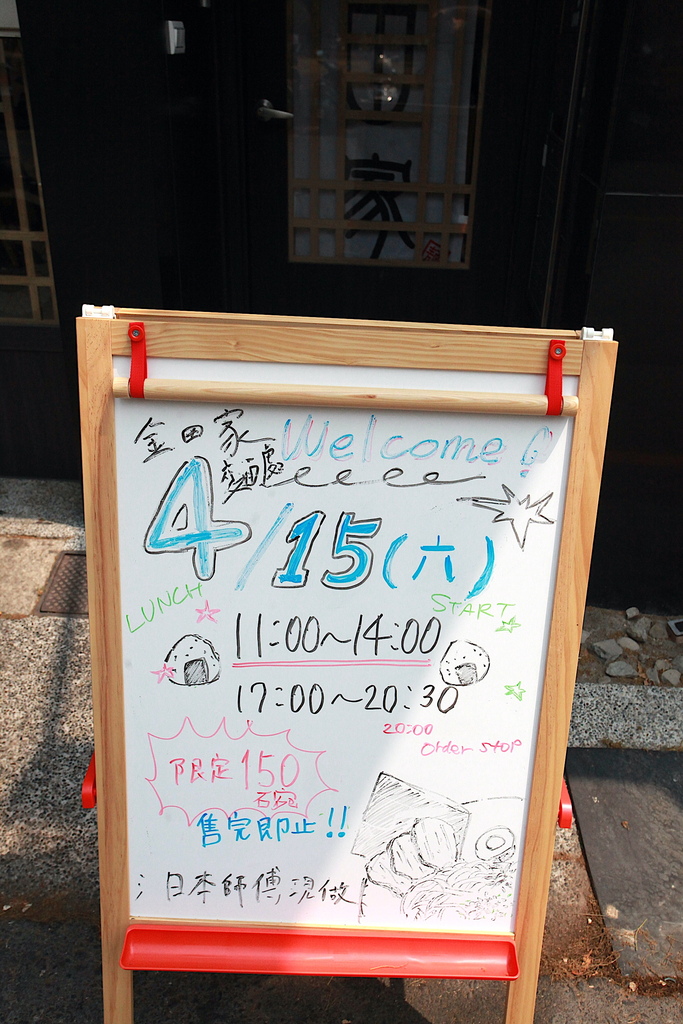 田
家
金田家
Welcome!
4/15(六)
LUNCH
START
11:00~14:00
17:00~20:30
20:00
Order STOP
限定150
碗
售完即止!!
日本師傅現做